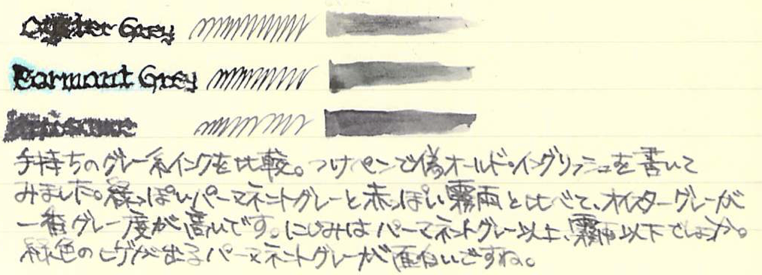 Oyster Grey
Parmanent Grey
手持ちのグレー系インクを比較。つけペンで偽オールド・イングリッシュを書いて
みました。緑っぽいパーマネントグレーと赤っぽい霧雨と比べて、オイスターグレーが
一番グレー度が高いです。にじみはパーマネントグレー以上、霧雨以下でしょうか。
緑色のヒゲが出るパーマネントグレーが面白いですね。